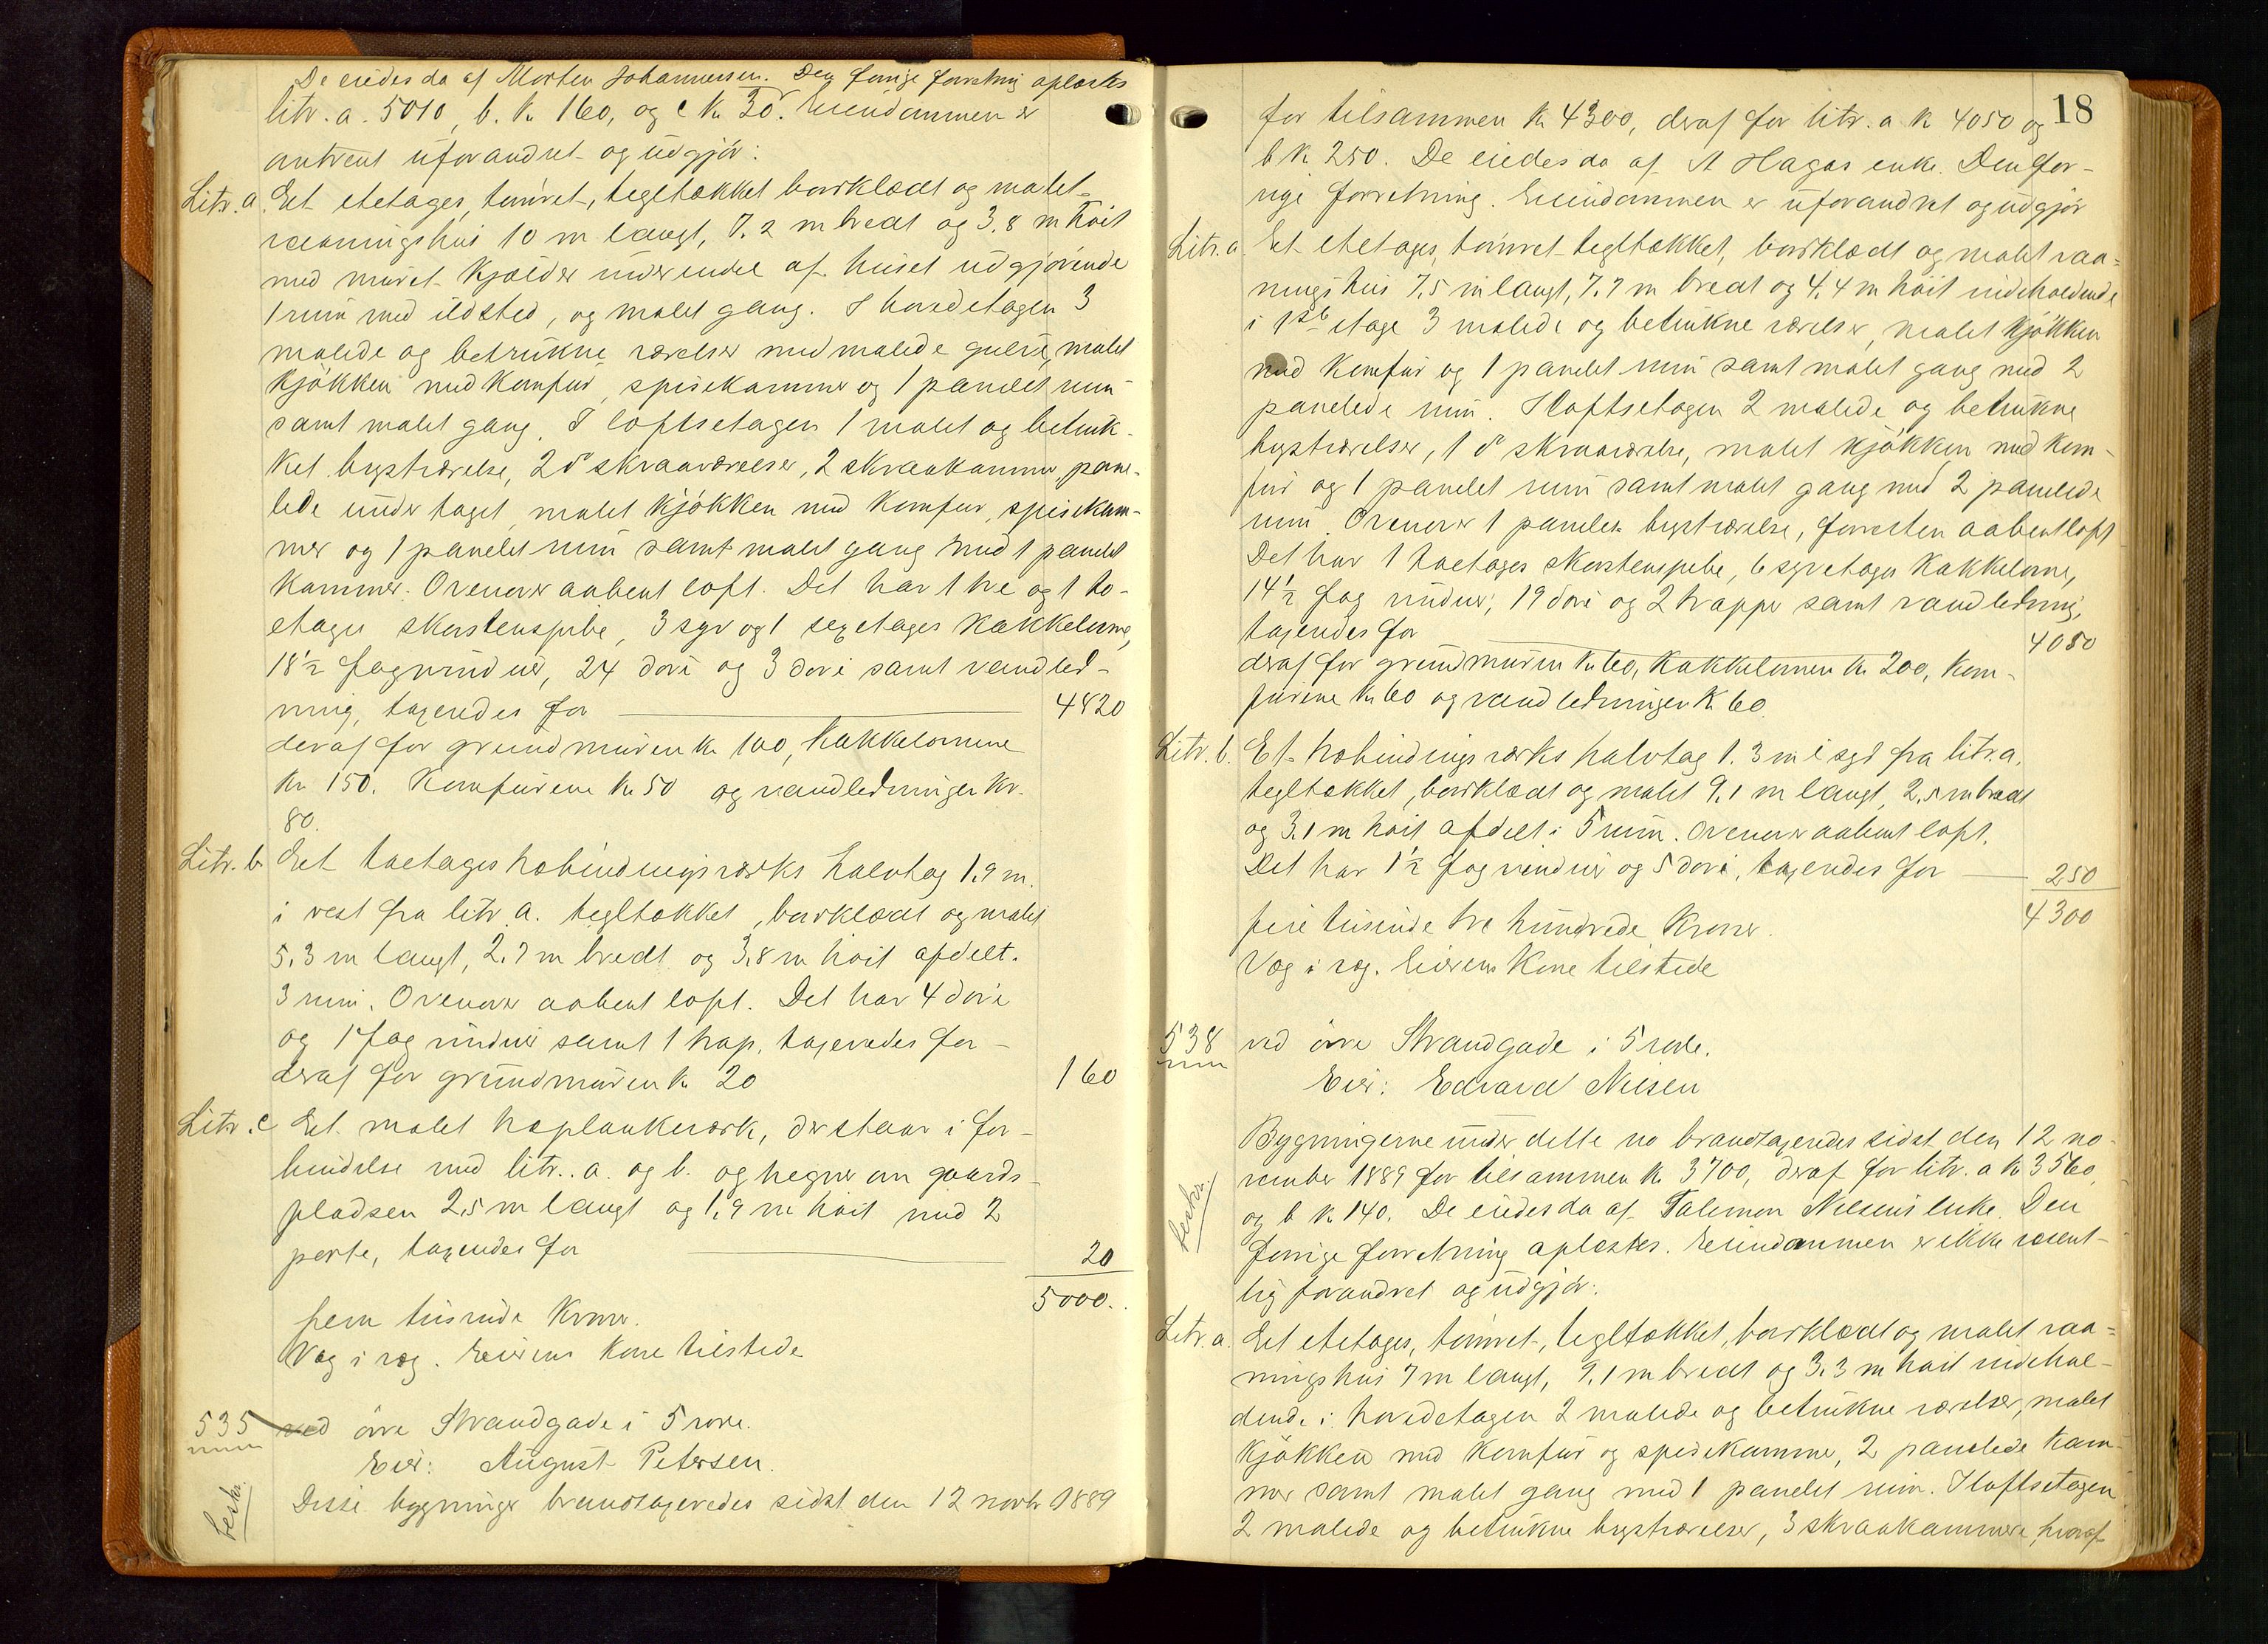 De eiedes da af Morten Johannessen. Den forrige forretning oplæstes
litr. a. 5010, b. kr 160, og c kr 30. Eiendommen er
omtrent uforandret og udgjør:
Litr. a. Et etetages, tømret, tegltækket bordklædt og malet
vaaningshus 10 m langt, 7.2 m bredt og 3.8 m høit
med muret kjælder under endel af huset udgjørende
1 rum med ildsted, og malet gang. I hovedetagen 3
malede og betrukne værelser med malede gulve, malet
kjøkken med komfur, spisekammer og 1 panelet rum
samt malet gang. I loftsetagen 1 malet og betruk-
ket kvistværelse, 2 do skraaværelser, 2 skraakammer pane-
lede under taget, malet kjøkken med komfur, spisekam-
mer og 1 panelet rum samt malet gang med 1 panelet
kammer. Ovenover aabent loft. Det har 1 tre og 1 to-
etages skorstenspibe, 3 syv og 1 sexetages kakkelovne,
18 1/2 fag vinduer, 24 døre og 3 døre samt vandled-
ning, taxeredes for 4820
deraf for grundmuren kr 100, kakkelovnene
kr 150. Komfurene kr 50 og vandledningen kr.
80.
Litr. b Et toetages udbindingsværks halvtag 1.9 m.
i vest fra litr a. tegltækket, bordklædt og malet
5.3 m langt, 2.7 m bredt og 3.8 m høit afdelt i
3 rum. Ovenover aabent loft. Det har 4 døre
og 1 fag vinduer samt 1 trap, taxeredes for
deraf for grundmuren kr 20 160
Litr. c Et malet træplankeværk, der staar i for-
bindelse med litr. a. og b. og hegner om gaards-
pladsen 2,5 m langt og 1,9 m høit med 2
porte, taxeredes for 20
5000.
fem tusinde kroner.
Væg i væg. Eierens kone tilstede
535 ved øvre Strandgade i 5 rode.
Eier: August Petersen.
beskr. Disse bygninger brandtaxeredes sidst den 12 novbr 1889
18
for tilsammen kr 4300, deraf for litr. a kr 4050 og
b kr 250. De eiedes da af A Hagas enke. Den for-
rige forretning. Eiendommen er uforandret og udgjør
Litr. a Et etetages, tømret tegltækket, bordklædt og malet vaa-
ningshus 7,5 m langt, 7,7 m bredt og 4,4 m høit indeholdende
i 1ste etage 3 malede og betrukne værelser, malet kjøkken
med komfur og 1 panelet rum samt malet gang med 2
panelede rum. I loftsetagen 2 malede og betrukne
kvistværelser, 1 do skraaværelse, malet kjøkken med kom-
fur og 1 panelet rum samt malet gang med 2 panelede
rum. Ovenover 1 panelet kvistværelse, forresten aabent loft
Det har 1 toetages skorstenspibe, 6 syvetages kakkelovne,
14 1/2 fag vinduer, 19 døre og 2 trapper samt vandledning,
taxeredes for 4050
deraf for grundmuren kr 60, kakkelovnene kr 200, kom-
furene kr 60 og vandledningen kr 60.
Litr. b. Et udbindingsværks halvtag 1.3 m i syd fra litr. a.
tegltækket, bordklædt og malet 9,1 m langt, 2,5 m bredt
og 3.1 m høit afdelt i 5 rum. Ovenover aabent loft.
Det har 1 1/2 fag vinduer og 5 døre, taxeredes for 250
4300
fire tusinde tre hundrede kroner.
Væg i væg. Eierens kone tilstede
538 ved øvre Strandgade i 5 rode.
Eier: Edvard Nilsen
Bygningerne under dette no brandtaxeredes sidst den 12 no-
vember 1889 for tilsammen kr. 3700, deraf for litr. a kr 3560,
beskr. og b kr 140. De eiedes da af Talemon Nilsens enke. Den
forrige forretning oplæstes. Eiendommen er ikke væsent-
lig forandret og udgjør:
Litr. a. Et etetages, tømret, tegltækket, bordklædt og malet vaa-
ningshus 7 m langt, 7.1 m bredt og 3.3 m høit indehol-
dende i hovedetagen 2 malede og betrukne værelser, malet
kjøkken med komfur og spisekammer, 2 panelede kam-
mer samt malet gang med 1 panelet rum. I loftsetagen
2 malede og betrukne kvistværelser, 3 skraakammere, hvoraf